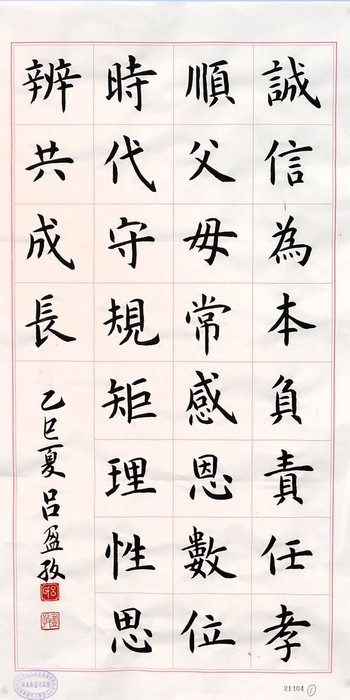 誠信為本負責任孝
順父母常感恩數位
時代守規矩理性思
辨共成長
乙巳夏呂盈孜
21104 ①